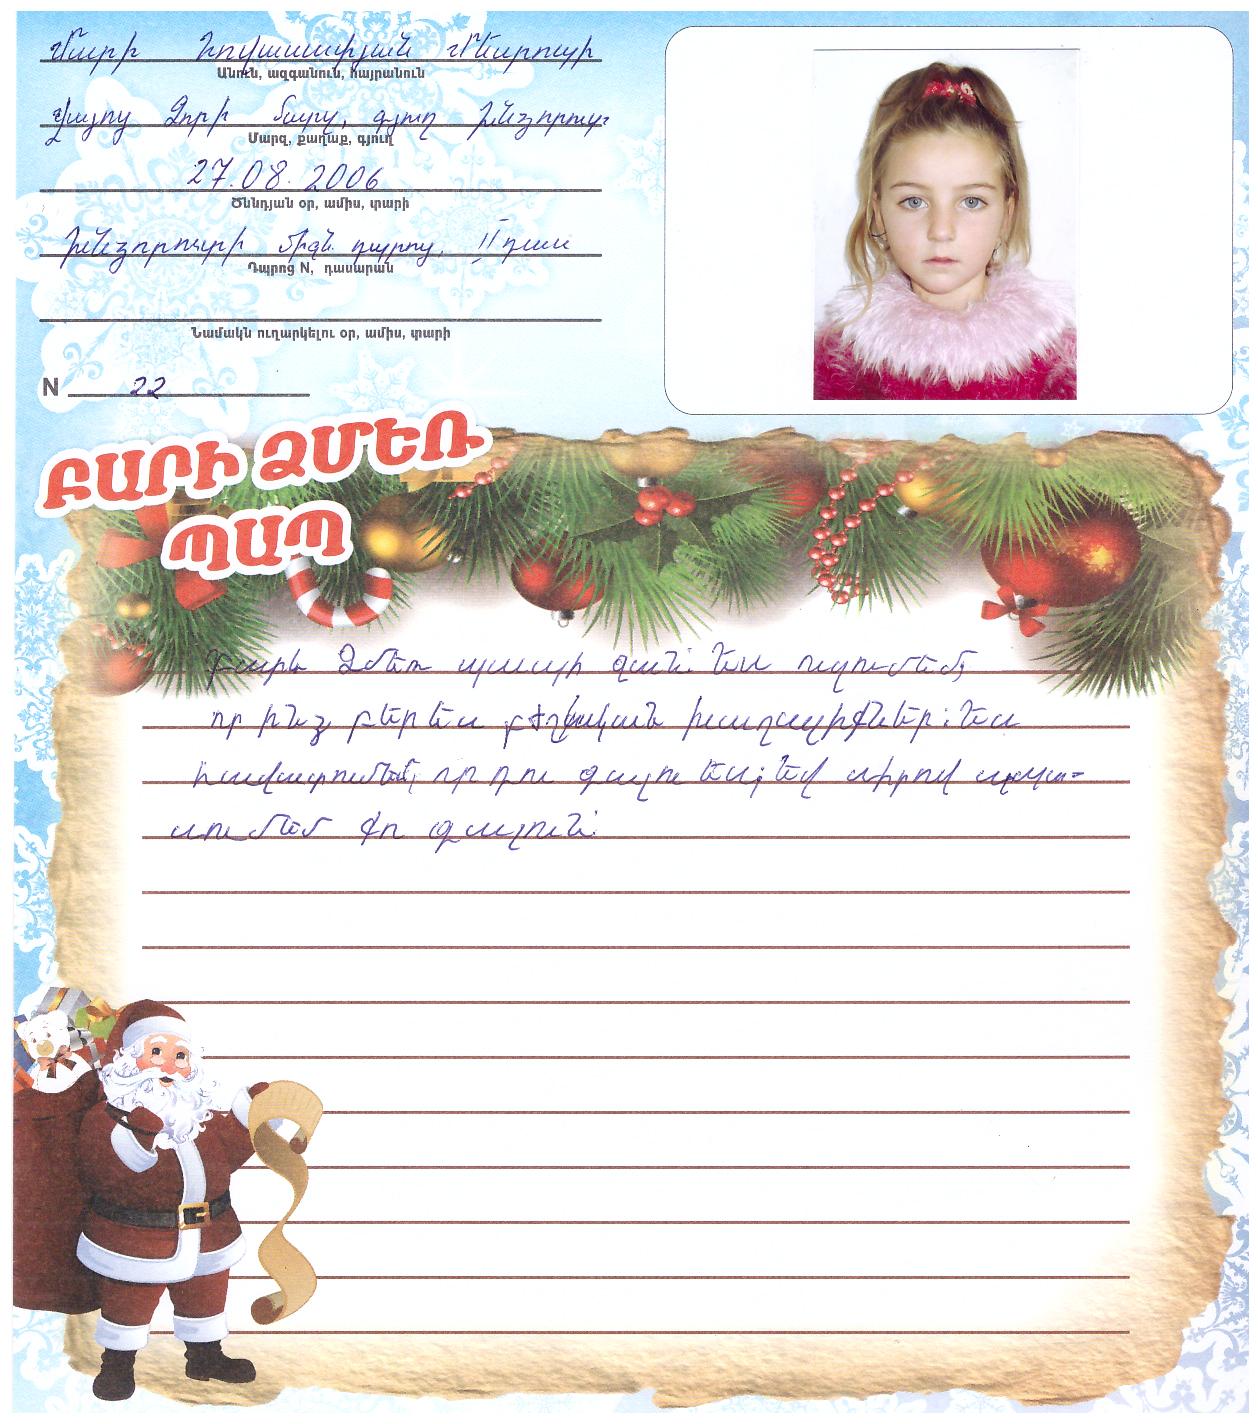 Մարի Հովասափյան Մեսրոպի
Անուն, ազգանուն, հայրանուն
Վայոց Ձորի մարզ, գյուղ Խնձորուտ
Մարզ, քաղաք, գյուղ
27.08.2006
Ծննդյան օր, ամիս, տարի
Խնձորուտի միջն. դպրոց, II դաս
Դպրոց N, դասարան
Նամակն ուղարկելու օր, ամիս, տարի
N 22
ԲԱՐԻ ՁՄԵՌ
ՊԱՊ
Բարև Ձմեռ պապի ջան: Ես ուզումեմ,
որ ինձ բերես բժշկական խաղալիքներ: Ես
հավատումեմ, որ դու գալու ես: Եվ սիրով սպա-
սումեմ քո գալուն: